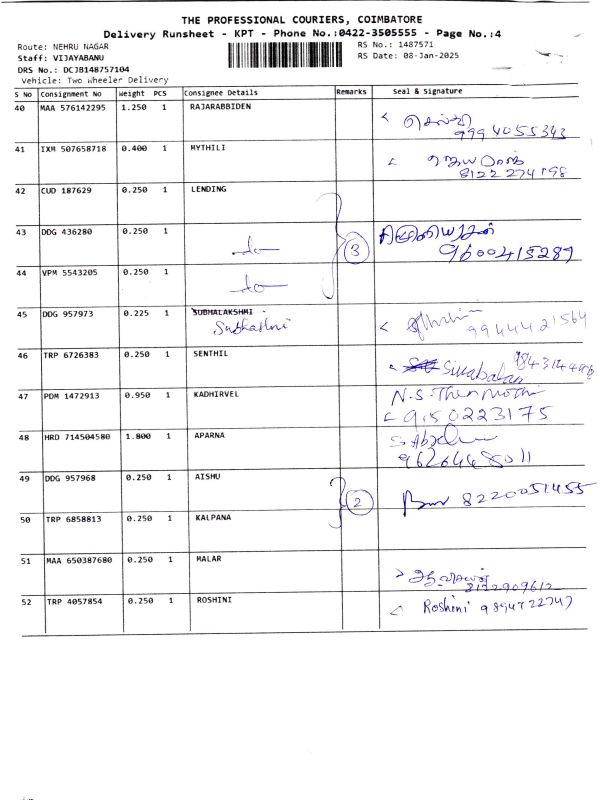 THE PROFESSIONAL COURIERS, COIMBATORE
Delivery Runsheet - KPT - Phone No.:0422-3505555 - Page No.:4
Route: NEHRU NAGAR
Staff: VIJAYABANU
DRS No.: DCJB148757104
Vehicle: Two Wheeler Delivery
RS No.: 1487571
RS Date: 08-Jan-2025
S No Consignment No Weight PCS Consignee Details Remarks Seal & Signature
40 MAA 576142295 1.250 1 RAJARABBIDEN
செல்வி
9994055343
41 IXM 507658718 0.400 1 MYTHILI
8122 274198
42 CUD 187629 0.250 1 LENDING
43 DDG 436280 0.250 1
do 3
9600415289
44 VPM 5543205 0.250 1
do
45 DDG 957973 0.225 1 SUBHALAKSHMI
Subhashni
9944421564
46 TRP 6726383 0.250 1 SENTHIL
Sivabalan
47 PDM 1472913 0.950 1 KADHIRVEL
N.S.Thenmothi
9150223175
48 HRD 714504580 1.800 1 APARNA
49 DDG 957968 0.250 1 AISHU
2 8220051455
50 TRP 6858813 0.250 1 KALPANA
51 MAA 650387680 0.250 1 MALAR
8122909612
52 TRP 4057854 0.250 1 ROSHINI
Roshini 9894722747